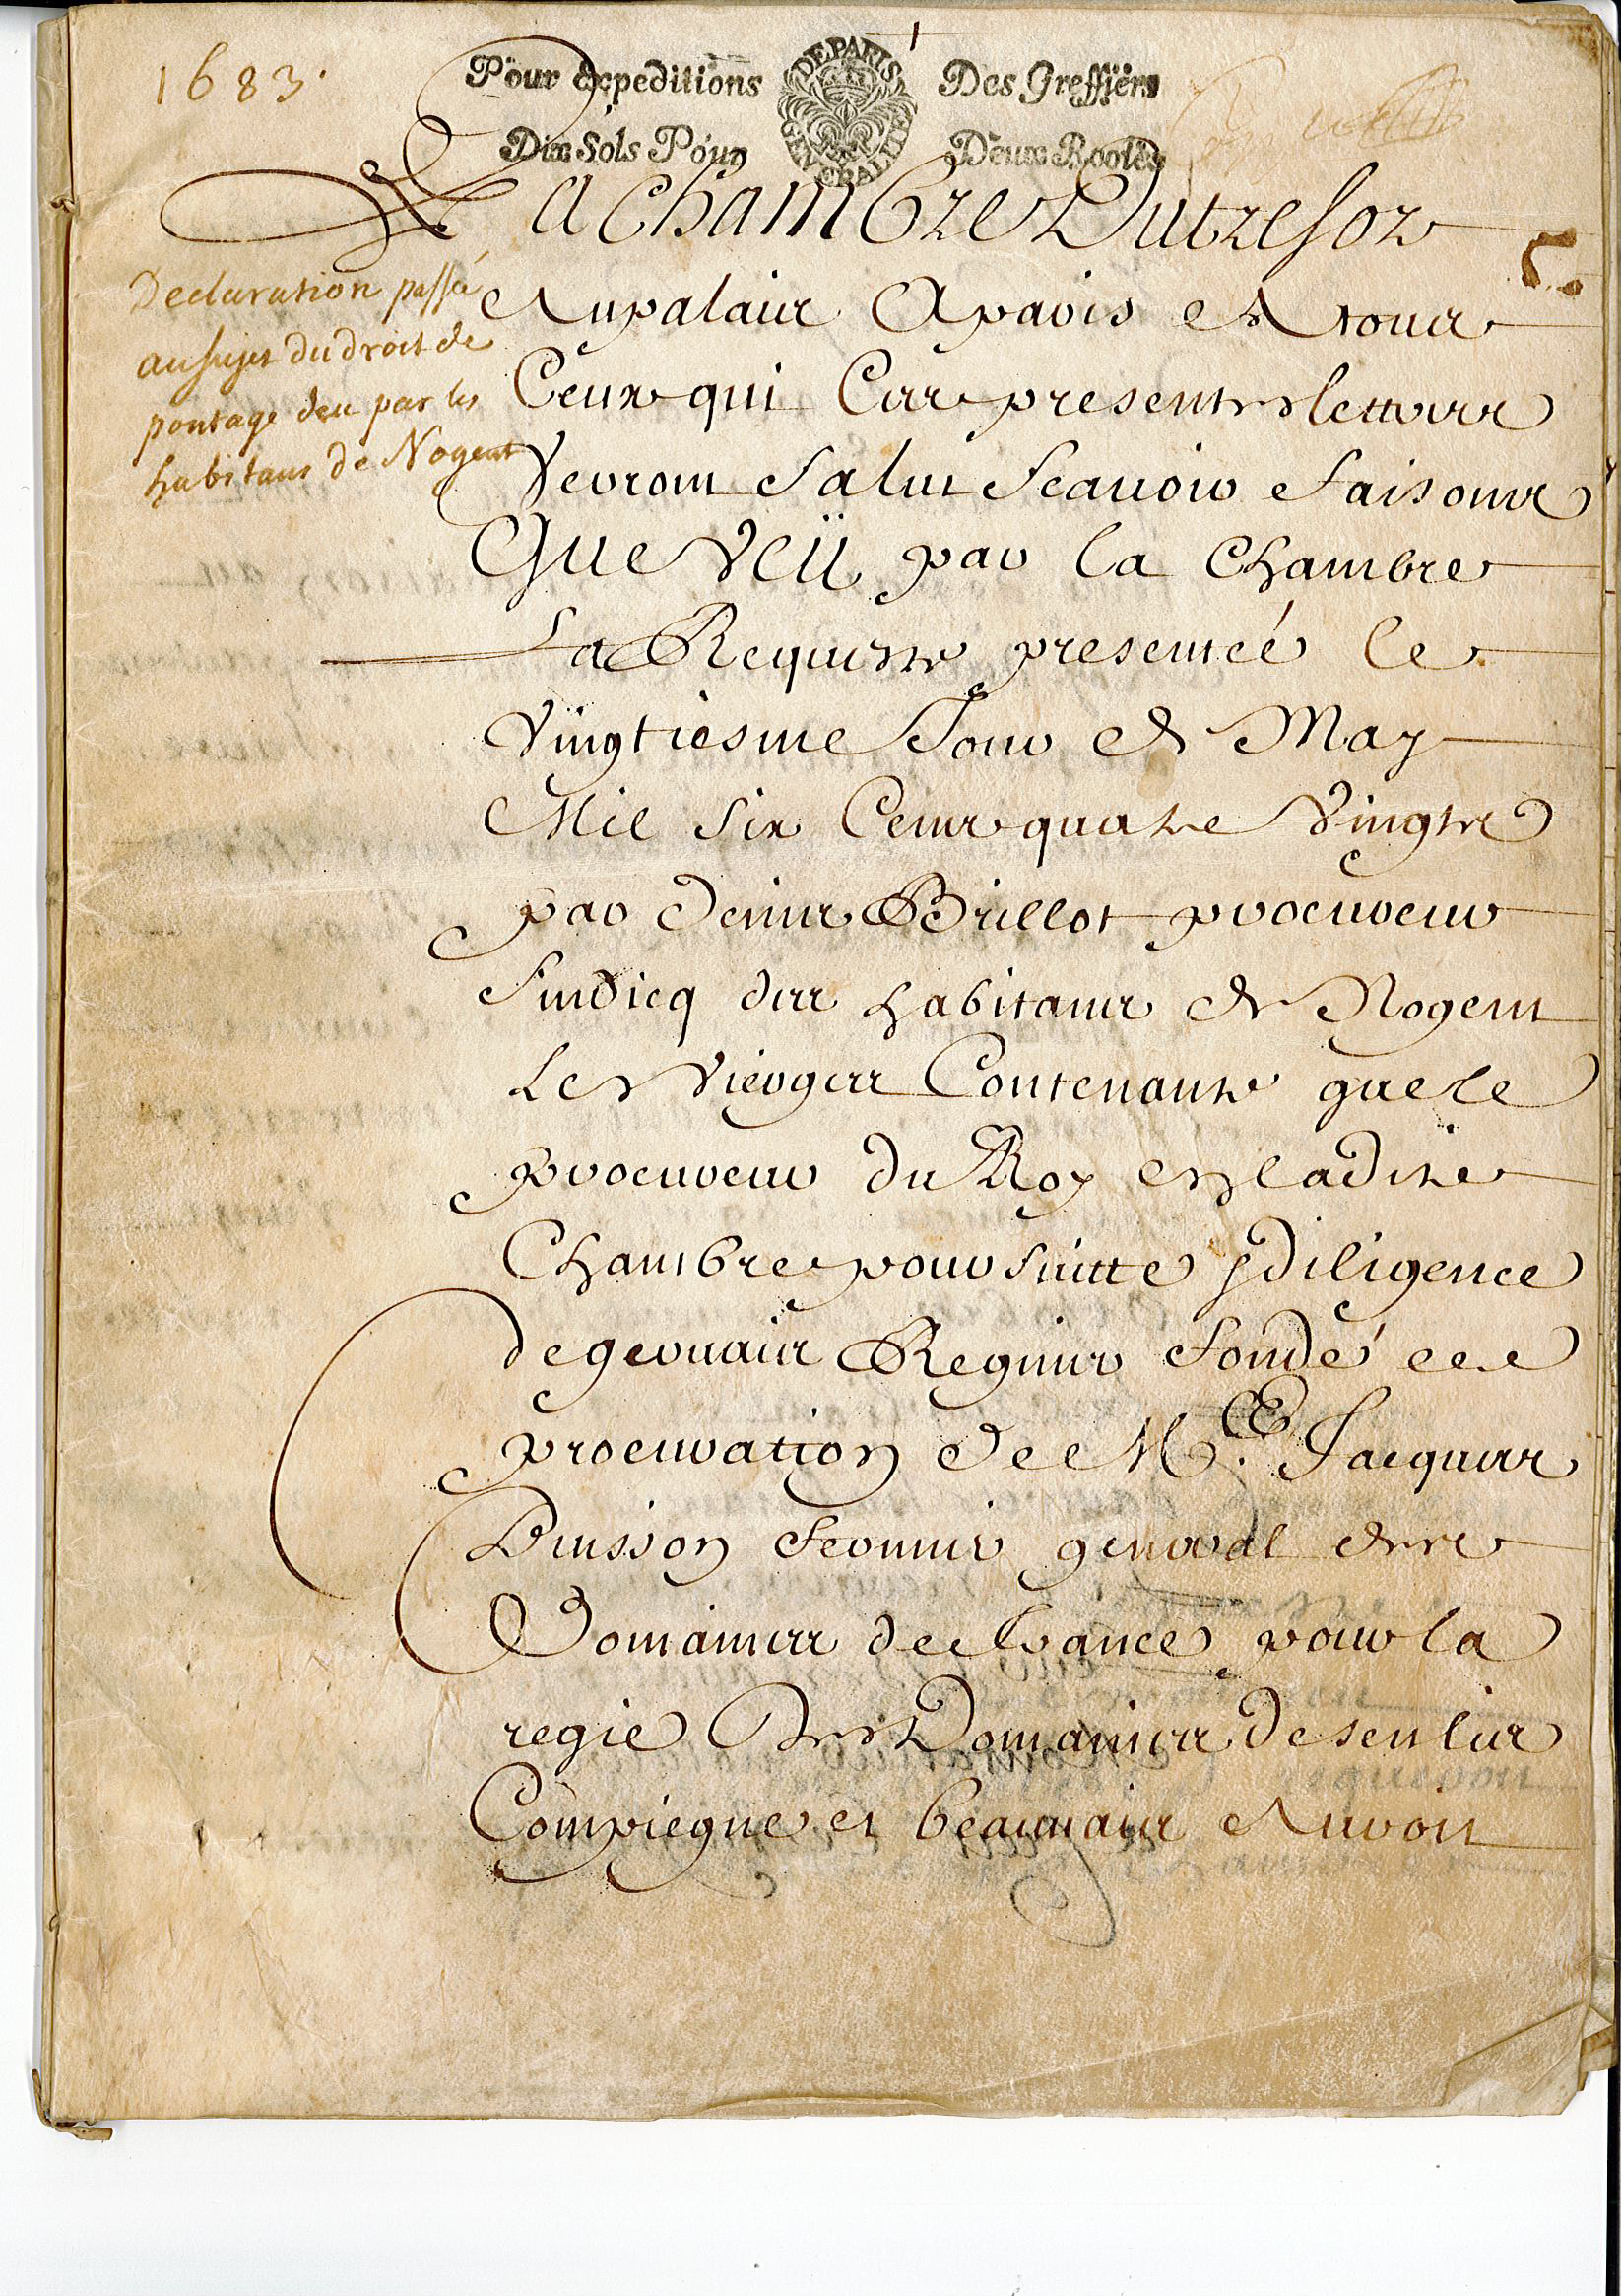 1683.
Pour Expeditions Des Greffiers
Dix Sols Pour Deux Rooles
DE PARIS GENERALITE
Declaration passé
au sujet du droit de
pontage deu par les
habitans de Nogent
La Chambre Du tresor
Au palais A paris A tous
Ceux qui Ces presentes lettres
verront Salut Scauoir faisons
Que Veü par la Chambre
La Requeste presentée le
Vingtiesme Jour de May
Mil Six Cens quatre Vingts
par Denis Brillot procureur
Sindicq des habitans de Nogent
Les Vierges Contenante que le
procureur du Roy en ladite
Chambre poursuitte & diligence
de geruais Regnier fondé de
procuration de Me. Jacques
Buisson fermier general des
Domaines de france pour la
regie des Domaines de senlis
Compiegne et beauuais Auroit